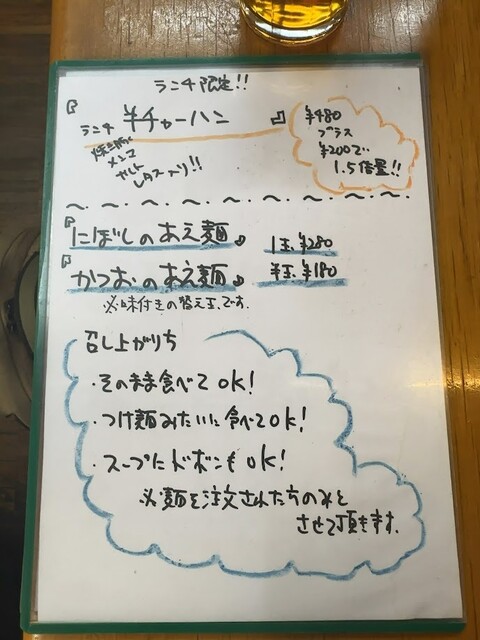 ランチ限定!!
『ランチ 半チャーハン』
焼豚
メンマ
ナルト
レタス入り!!
¥480
プラス
¥200で
1.5倍量!!
『にぼしのあえ麺』 1玉 ¥280
『かつおのあえ麺』 半玉 ¥180
※味付きの替え玉です.
召し上がり方
・そのまま食べてOK!
・つけ麺みたいに食べてOK!
・スープにドボンもOK!
※麺を注文された方のみと
させて頂きます.